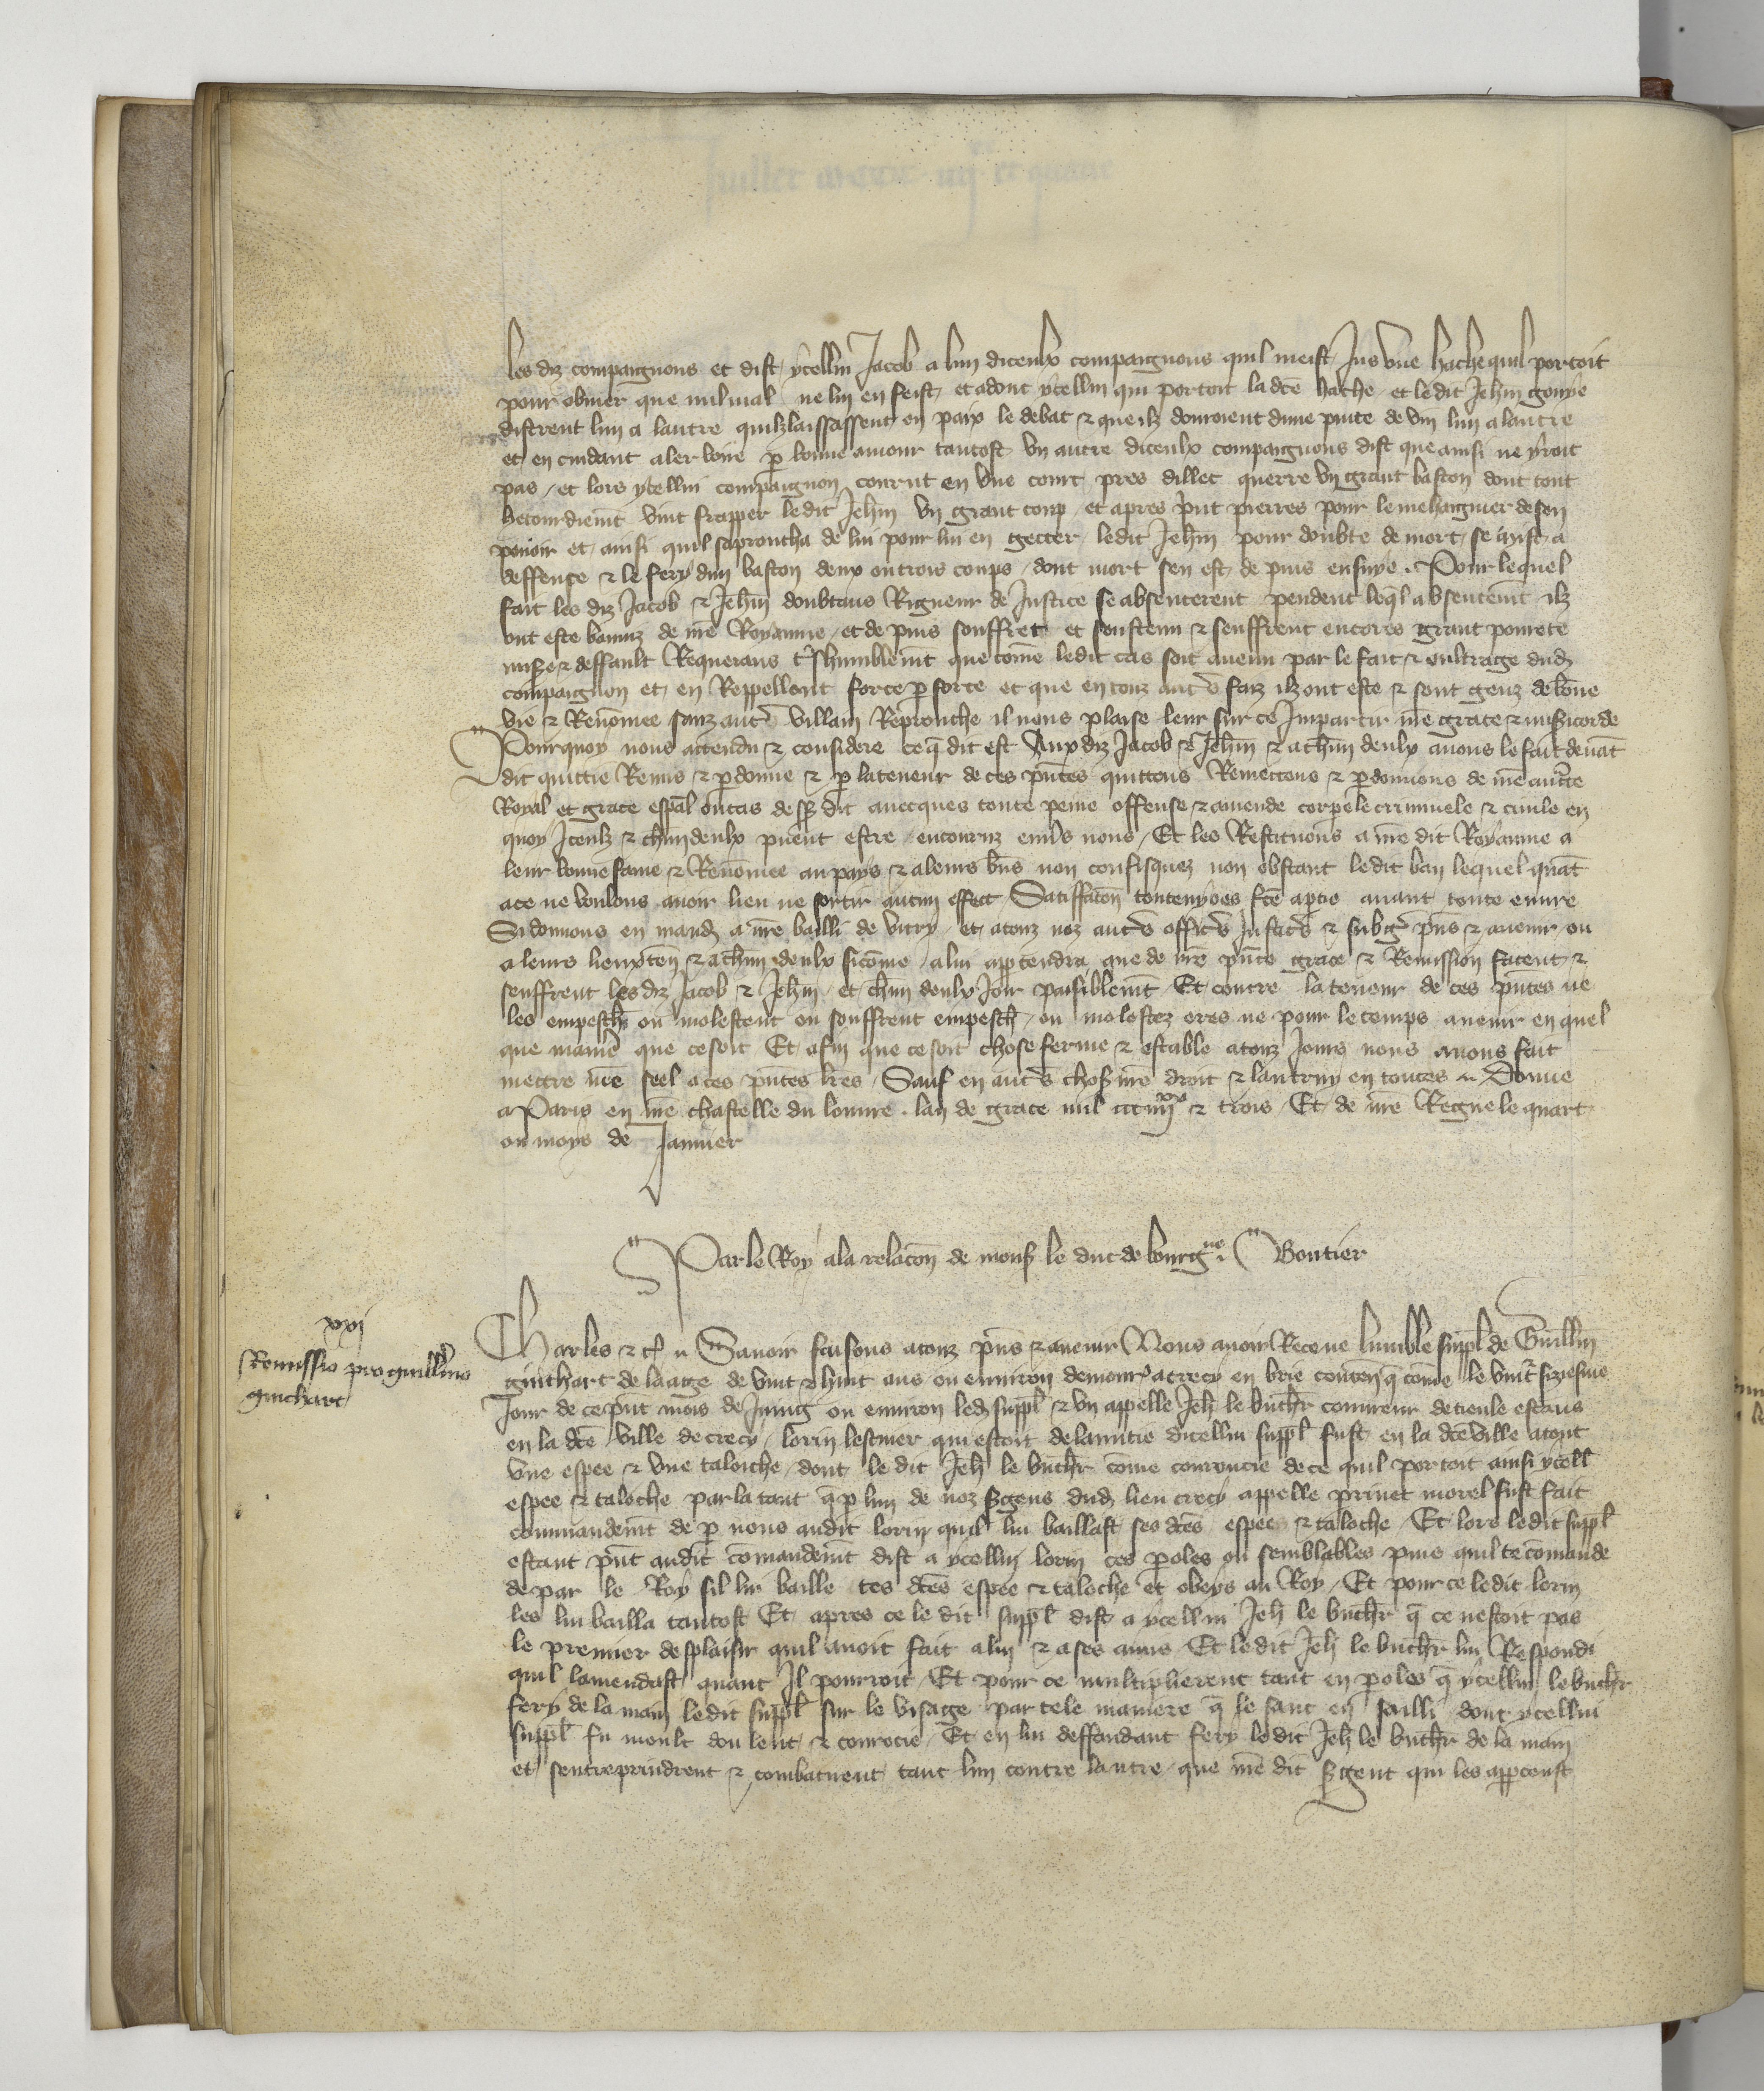 les diz compaignons et dist ycellui Jacob a lun diceulx compaignons quil meist Jus vne hache quil portoit
pour obuier que nul mal ne lui en feist et adont ycellui qui portoit la dce hache et ledit Jehin
distrent lun a lautre quilz laissassent en paix le debat & que ilz donroient dune pinte de vin lun a lautre
et en cuidant aler boire p bonne amour tantost vn autre diceulx compaignons dist que ainsi ne yroit
pas et lors ycellui compaignon courut en vne court pres dillec querre vn grant baston dont tout
vint frapper ledit Jehin vn grant coup et apres print pierres pour le mehaignier de son
pouoir et ainsi quil saproucha de lui pour lui en getter ledit Jehin pour doubte de mort se mist a
deffence & le fery dun baston deux ou trois coups dont mort sen est de puis ensuye . Pour lequel
fait les diz Jacob & Jehin doubtans Rigueur de Justice se absenterent pendent leql absentemt ilz
ont este banniz de nre Royaume et de puis souffret et soustenu & seuffrent encores grant pourete
misere & deffault Requerans tshumblemt que come ledit cas soit auenu par le fait & oultrage dud
compaignon et en Reppellant force p force et que en touz autes faiz ilz ont este & sont genz de bone
vie & Renomee sanz aute villain Reprouche il nous plaise leur sur ce Impartir nre grace & misicorde
Pourquoy nous attendu & considere ce q dit est Aux diz Jacob & Jehin & a chun deulx auons le fait deuat
dit quittie Remis & pdonne & p la teneur de ces pntes quittons Remettons & pdonnons de nre aucte
Royal et grace espal ou cas de sus dit auecques toute peine offense & amende corpele criminele & ciuile en
quoy Iceulz & chun deulx peuent estre encouruz enuers nous Et les Restituons a nre dit Royaume a
leur bonne fame & Renomee au pays & a leurs bns non confisquez non obstant ledit ban lequel quat
a ce ne voulons auoir lieu ne sortir aucun effect Satiffacon toutesuoies fce aptie auant toute euure
Si donnons en mand a nre bailli de vitry et a touz noz autes offics Justics & subgz pns & auenir ou
a leurs lieuxten & a chun deulx sicome a lui apptendra que de nre pnte grace & Remission facent &
seuffrent les diz Jacob & Jehin et chun deulx Joir paisiblemt Et contre la teneur de ces pntes ne
les empesch ou molestent ou souffrent empesch ou molestez ores ne pour le temps auenir en quel
que maniere que ce soit Et afin que ce soit chose ferme & estable a touz Jours nous auons fait
mettre nre seel a ces pntes lres Sauf en autes choses nre droit & lautruy en toutes Donne
a Paris en nre chastelle du louure . lan de grace mil ccc iiijxx & trois Et de nre Regne le quart
ou moys de Januier
Par le Roy a la relacon de mons le duc de bourgne . Gontier
xxj
Remissio pro guillmo
guichart
Charles & c Sauoir faisons a touz pns & auenir Nous auoir Receue lumble suppl de Guillin
guichart de laage de vint & huit ans ou enuiron demourt a crecy en brie conten q come le vint siziesme
Jour de ce pnt mois de Juing ou enuiron led suppl & vn appelle Jeh le buchr couureur de tieule estans
en la dce ville de crecy lorin lescuier qui estoit de lamitie dicellui suppl fust en la dce ville atout
vne espee & vne taloiche dont le dit Jeh le buchr come courroucie de ce quil portoit ainsi ycell
espee & taloche parla tant q p lun de noz sgens dud lieu crecy appelle prinet morel fust fait
commandemt de p nous audit lorin quil lui baillast ses dces espee & taloche Et lors ledit suppl
estant pnt audit comandemt dist a ycellui lorin ces poles ou semblables puis quil te comande
de par le Roy sil lui baille tes dces espee & taloche et obeys au Roy Et pour ce ledit lorin
les lui bailla tantost Et apres ce le dit suppl dist a ycellui Jeh le buchr q ce nestoit pas
le premier desplaisir quil auoit fait a lui & a ses amis Et ledit Jeh le buchr lui Respondi
quil lamendast quant Il pourroit Et pour ce multiplierent tant en poles q ycellui le buchr
fery de la main ledit suppl sur le visage par tele maniere q le sanc en sailli dont ycellui
suppl fu moult doulent & courocie Et en lui deffendant fery ledit Jeh le buchr de la main
et sentreprindrent & combatirent tant lun contre lautre que nre dit sgent qui les appceust